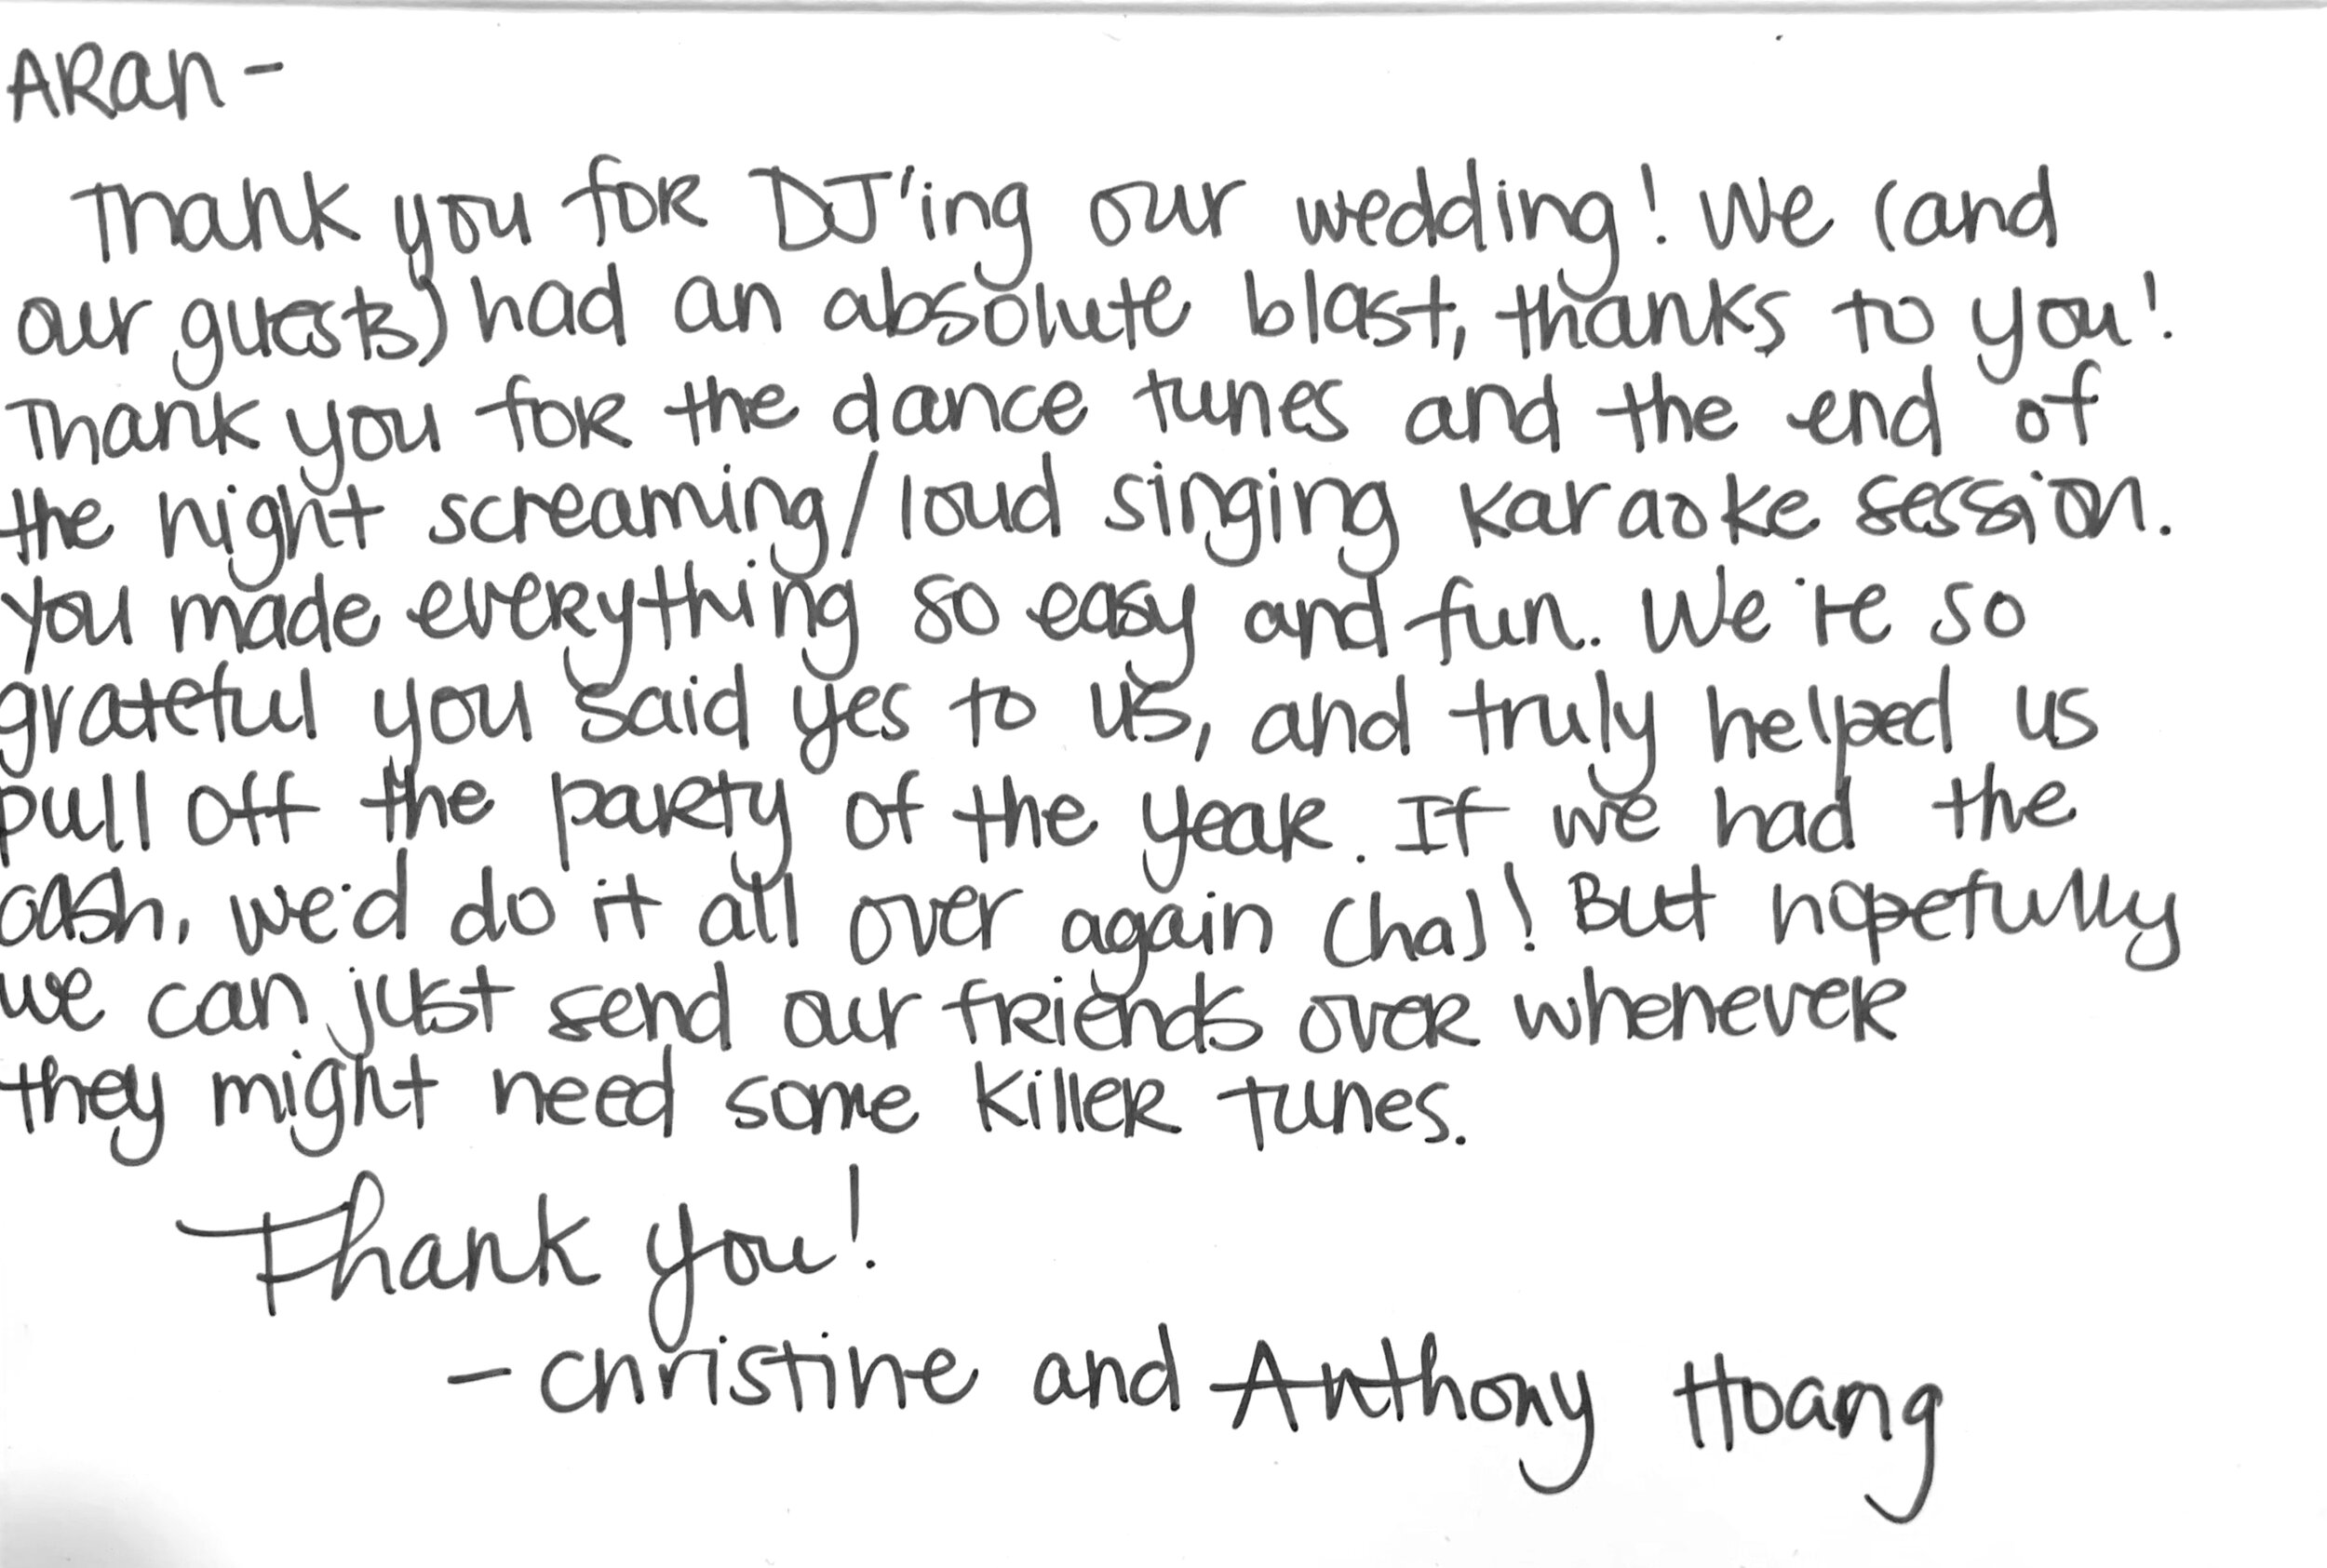 ARan-
Thank you for DJ'ing our wedding! We (and
our guests) had an absolute blast, thanks to you!
Thank you for the dance tunes and the end of
the night screaming/loud singing karaoke session.
You made everything so easy and fun. We're so
grateful you said yes to us, and truly helped us
pull off the party of the year. If we had the
cash, we'd do it all over again (ha)! But hopefully
we can just send our friends over whenever
they might need some killer tunes.
Thank you!
- Christine and Anthony Hoang